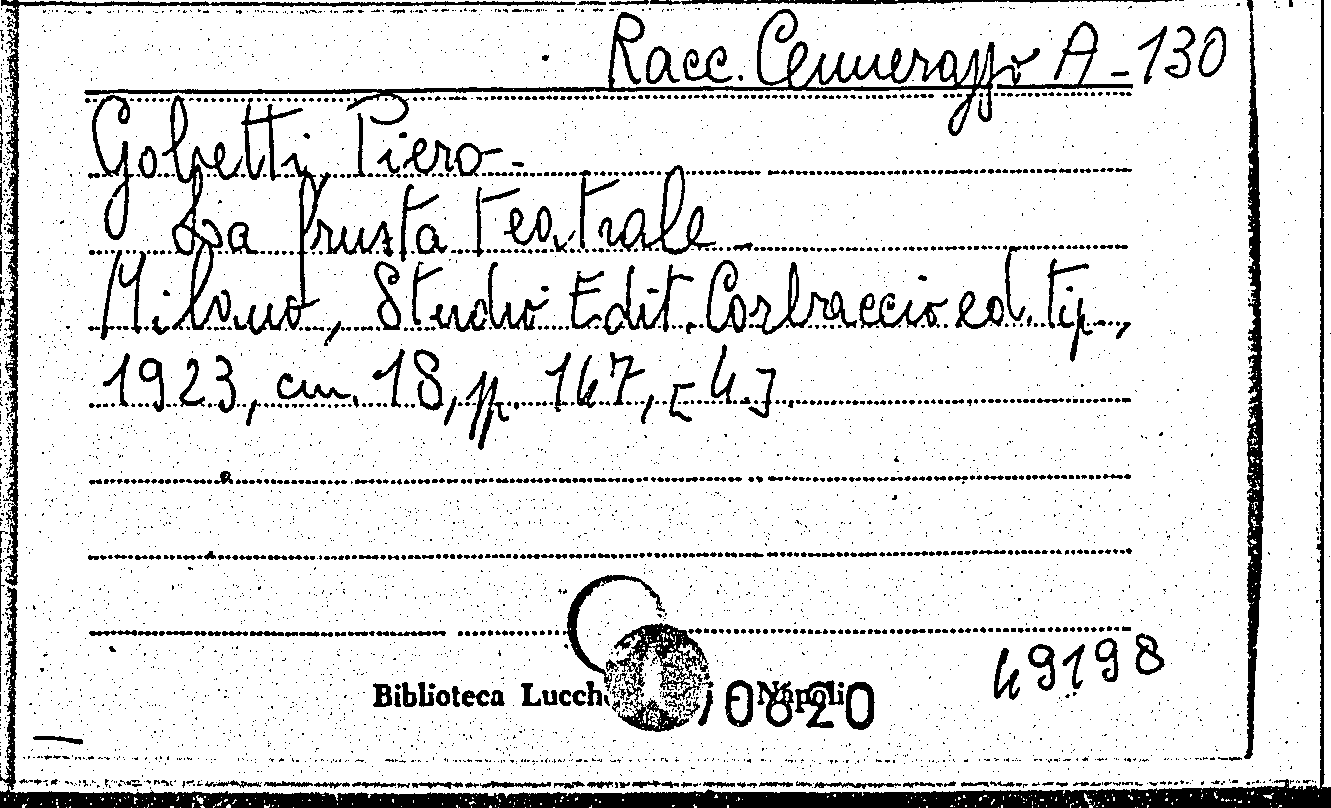 Racc. Cennerazzo A-130
Gobetti, Piero-.
La frusta teatrale -
Milano, Studio Edit. Corbaccio ed. tip.,
1923, cm. 18, pp. 147, [4.].
49198
Biblioteca Napoli
0620